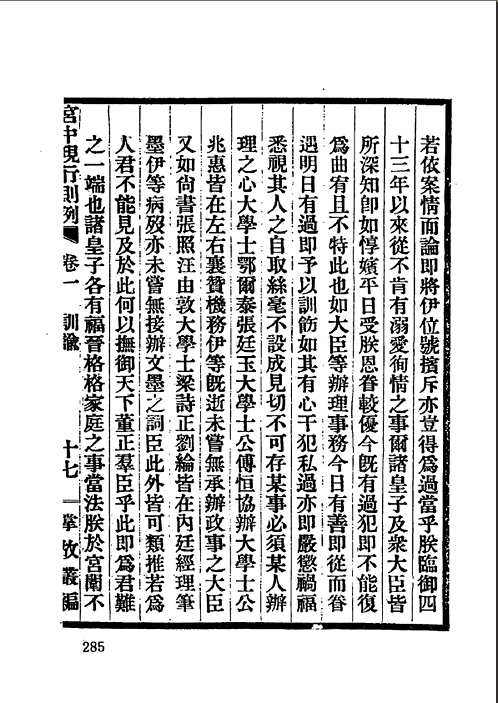 若依案情而論即將伊位號擯斥亦豈得爲過當乎朕臨御四
十三年以來從不肯有溺愛徇情之事爾諸皇子及衆大臣皆
所深知卽如惇嬪平日受朕恩眷較優今旣有過犯即不能復
爲曲宥且不特此也如大臣等辦理事務今日有善即從而眷
遇明日有過即予以訓飭如其有心干犯私過亦即嚴懲禍福
悉視其人之自取絲毫不設成見切不可存某事必須某人辦
理之心大學士鄂爾泰張廷玉大學士公傅恒協辦大學士公
兆惠皆在左右襄贊機務伊等旣逝未嘗無承辦政事之大臣
又如尙書張照汪由敦大學士梁詩正劉綸皆在內廷經理筆
墨伊等病歿亦未嘗無接辦文墨之詞臣此外皆可類推若爲
人君不能見及於此何以撫御天下董正羣臣乎此即爲君難
之一端也諸皇子各有福晉格格家庭之事當法朕於宮闈不
宮中現行則例 卷一 訓諭 十七 掌故叢編
285